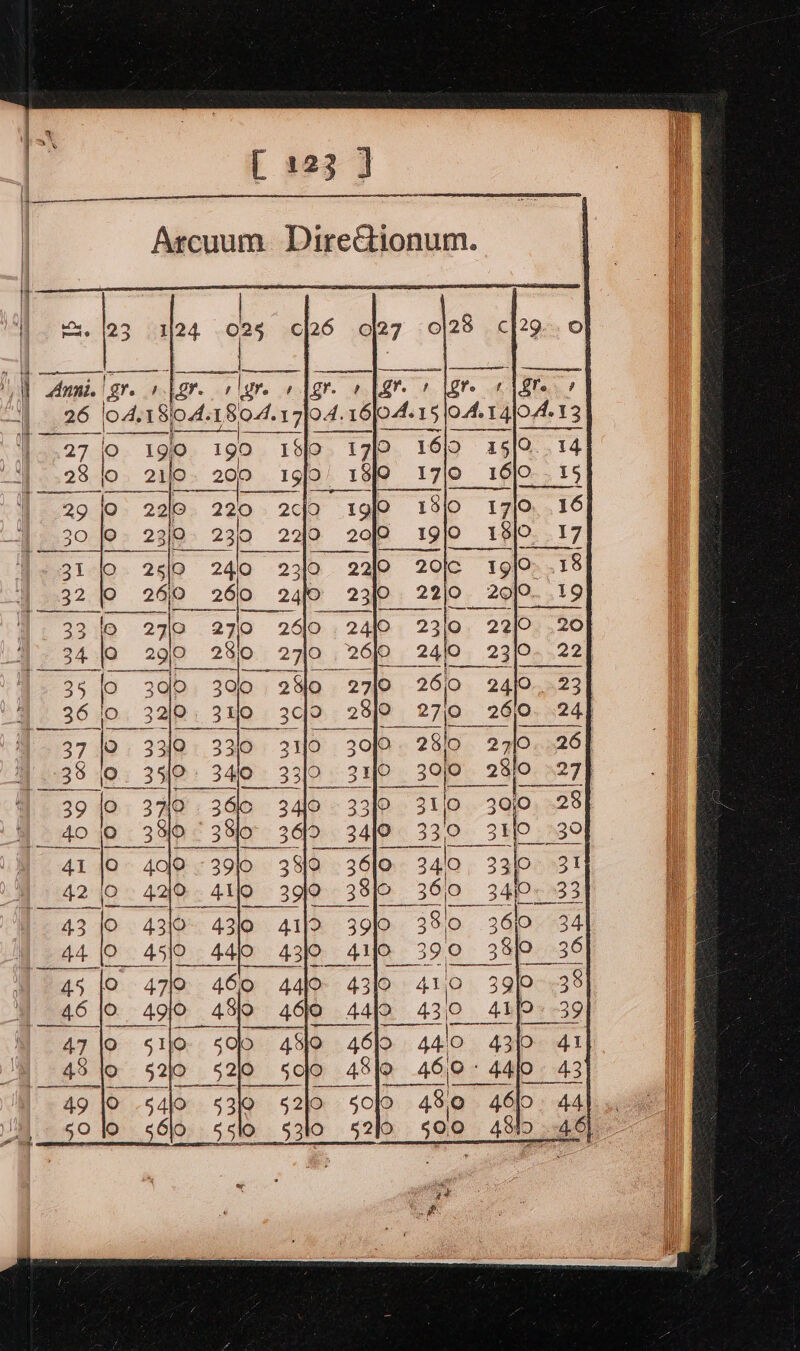 [ 123 ]
Arcuum Directionum.
♎. 23 1 24 0 25 0 26 0 27 0 28 0 29 0
Anni. gr. ′ gr. ′ gr. ′ gr. ′ gr. ′ gr. ′ gr. ′
26 0A.18 0A.18 0A.17 0A.16 0A.15 0A.14 0A.13
27 0 19 0 19 0 18 0 17 0 16 0 15 0 14
28 0 21 0 20 0 19 0 18 0 17 0 16 0 15
29 0 22 0 22 0 20 0 19 0 18 0 17 0 16
30 0 23 0 23 0 22 0 20 0 19 0 18 0 17
31 0 25 0 24 0 23 0 22 0 20 0 19 0 18
32 0 26 0 26 0 24 0 23 0 22 0 20 0 19
33 0 27 0 27 0 26 0 24 0 23 0 22 0 20
34 0 29 0 28 0 27 0 26 0 24 0 23 0 22
35 0 30 0 30 0 28 0 27 0 26 0 24 0 23
36 0 32 0 31 0 30 0 28 0 27 0 26 0 24
37 0 33 0 33 0 31 0 30 0 28 0 27 0 26
38 0 35 0 34 0 33 0 31 0 30 0 28 0 27
39 0 37 0 36 0 34 0 33 0 31 0 30 0 28
40 0 38 0 38 0 36 0 34 0 33 0 31 0 30
41 0 40 0 39 0 38 0 36 0 34 0 33 0 31
42 0 42 0 41 0 39 0 38 0 36 0 34 0 33
43 0 43 0 43 0 41 0 39 0 38 0 36 0 34
44 0 45 0 44 0 43 0 41 0 39 0 38 0 36
45 0 47 0 46 0 44 0 43 0 41 0 39 0 38
46 0 49 0 48 0 46 0 44 0 43 0 41 0 39
47 0 51 0 50 0 48 0 46 0 44 0 43 0 41
48 0 52 0 52 0 50 0 48 0 46 0 44 0 43
49 0 54 0 53 0 52 0 50 0 48 0 46 0 44
50 0 56 0 55 0 53 0 52 0 50 0 48 0 46